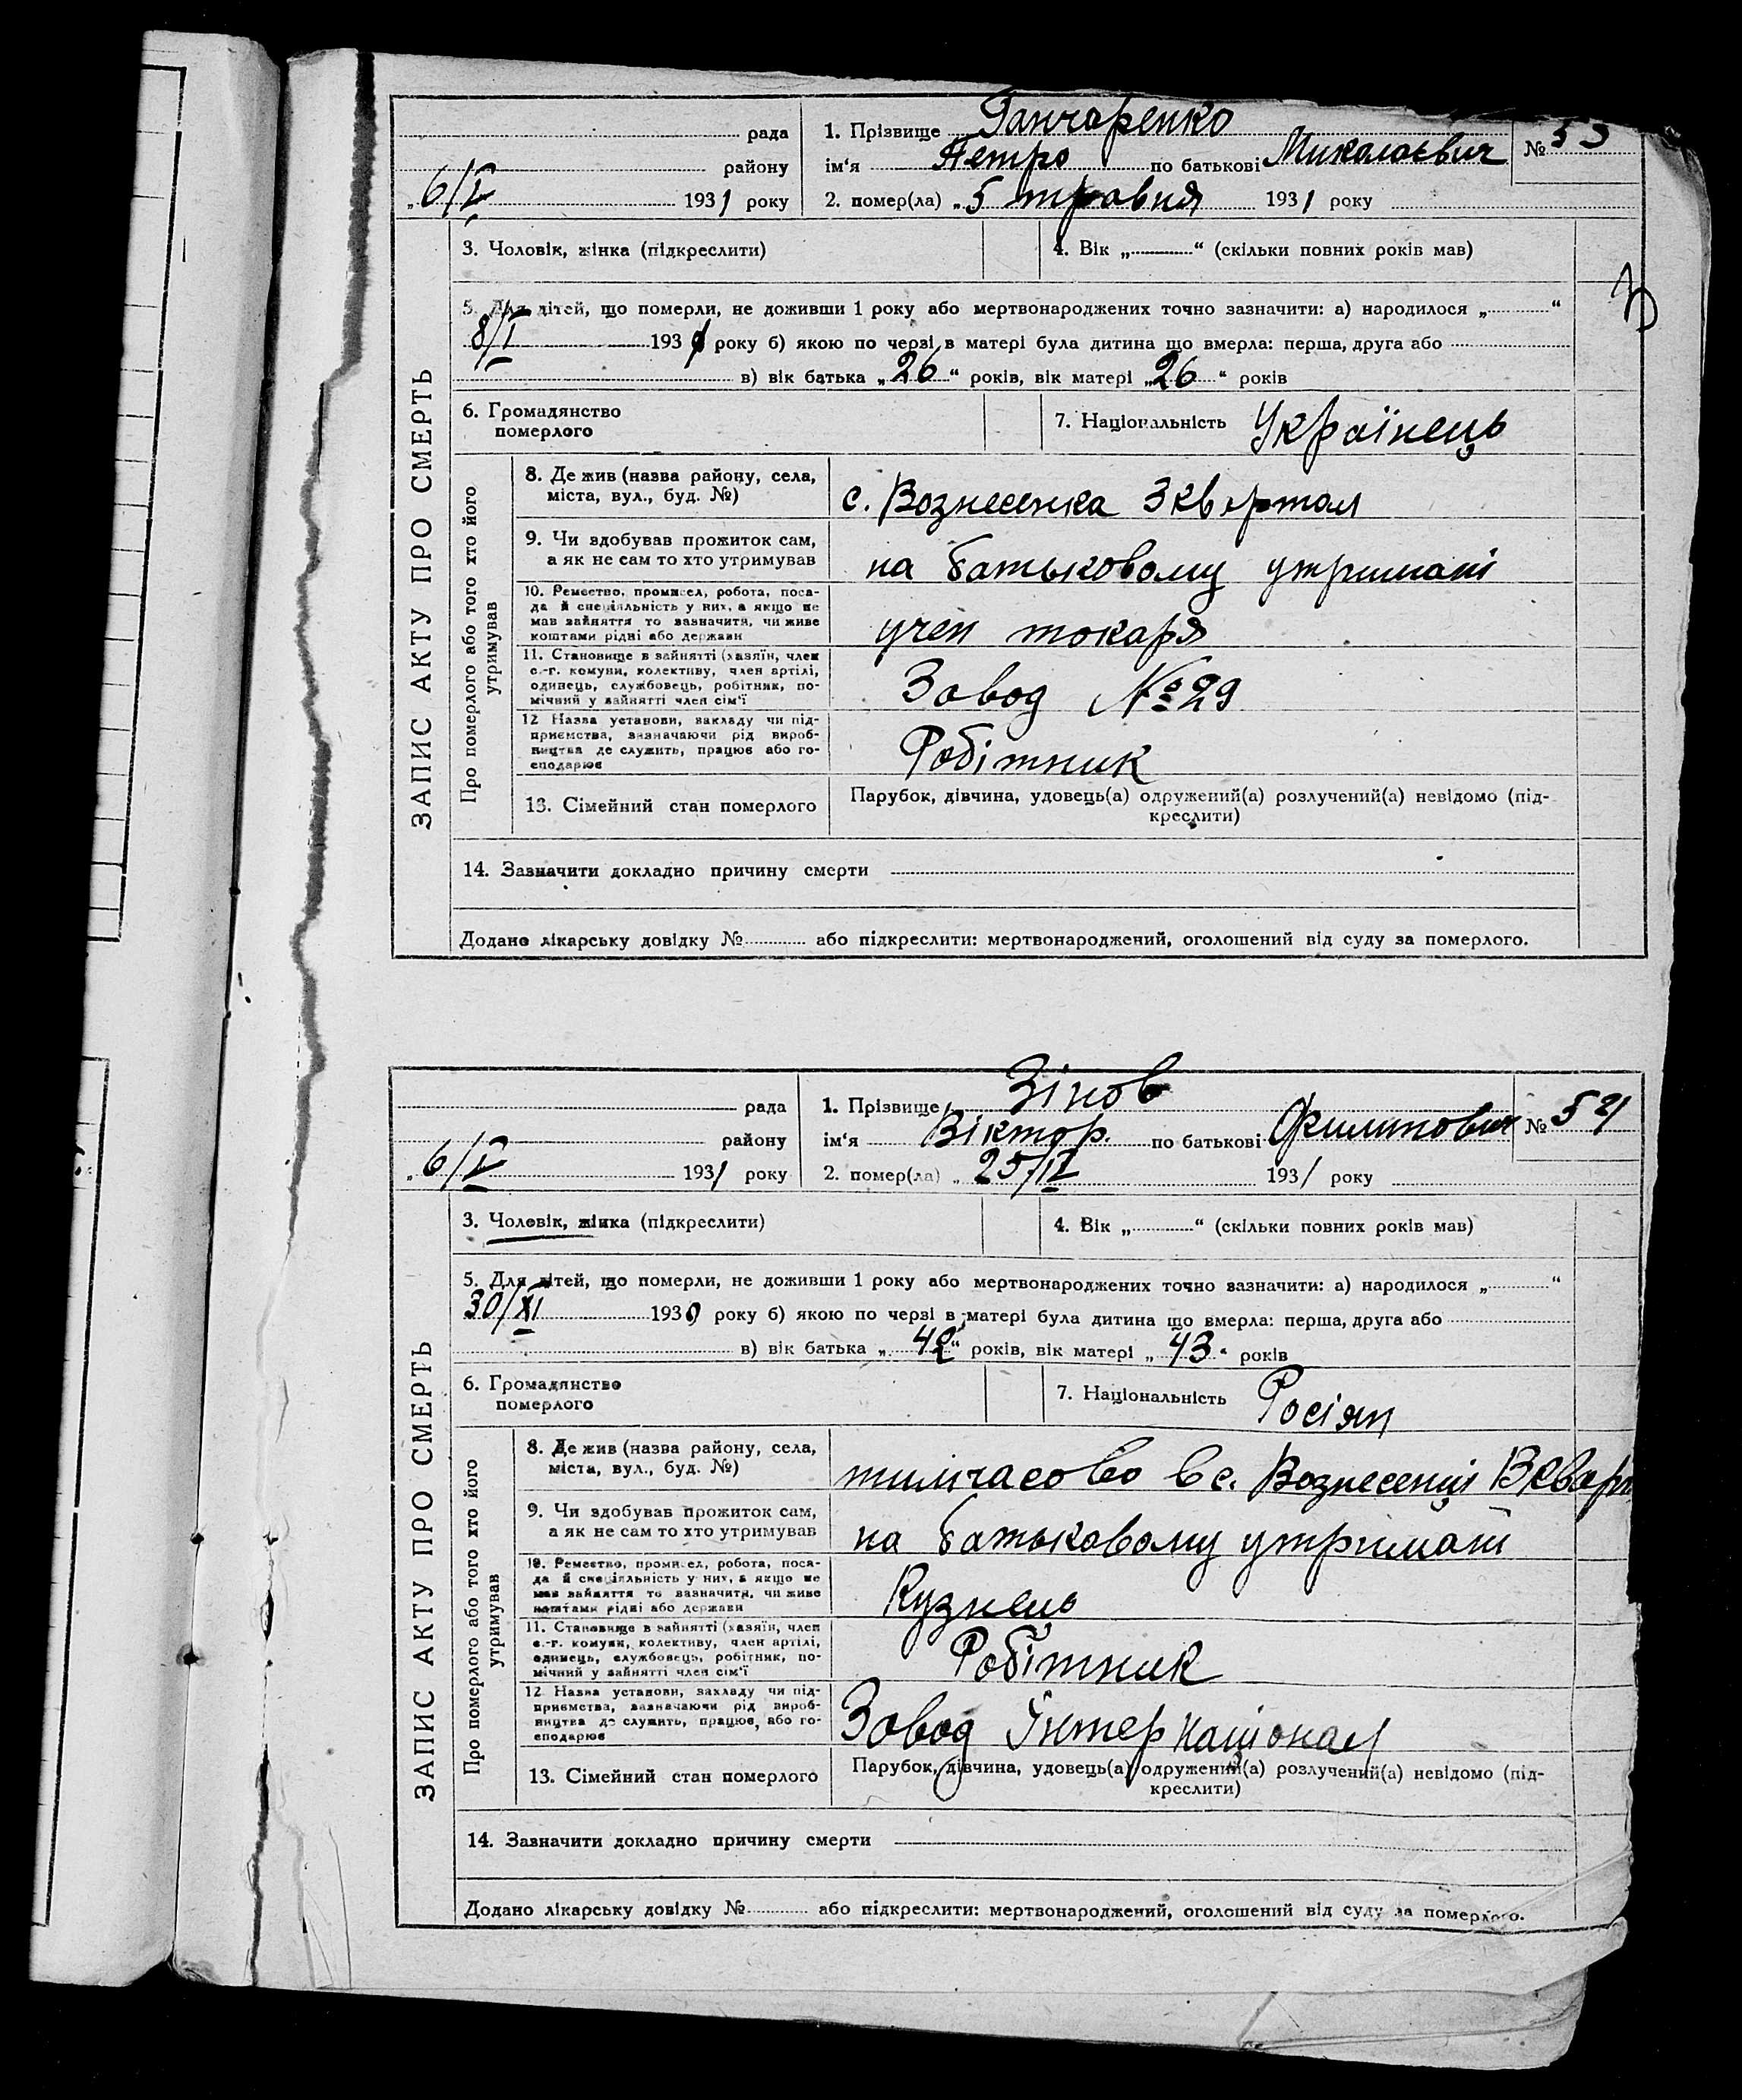 рада
району
„6/V 1931 року
1. Прізвище Ганчаренко
ім‘я Петро по батькові Миколаєвич
2. помер(ла) „5 травня 1931 року
№ 53
3. Чоловік, жінка (підкреслити)
4. Вік „ “ (скільки повних років мав)
5. Для дітей, що померли, не доживши 1 року або мертвонароджених точно зазначити: а) народилося „ “
8/I 1931 року б) якою по черзі в матері була дитина що вмерла: перша, друга або
в) вік батька „26“ років, вік матері „26“ років
6. Громадянство
померлого
7. Національність Українець
ЗАПИС АКТУ ПРО СМЕРТЬ
Про померлого або того хто його
утримував
8. Де жив (назва району, села,
міста, вул., буд. №)
с. Вознесенка 3 квартал
9. Чи здобував прожиток сам,
а як не сам то хто утримував
на батьковому утримані
10. Ремество, промисел, робота, поса-
да й спеціяльність у них, а якщо не
мав зайняття то зазначити, чи живе
коштами рідні або держави
учен токаря
11. Становище в зайнятті (хазяїн, член
с.-г. комуни, колективу, член артілі,
одинець, службовець, робітник, по-
мічний у зайнятті член сім‘ї
Завод № 29
12 Назва установи, закладу чи під-
приємства, зазначаючи рід вироб-
ництва де служить, працює або го-
сподарює
Робітник
13. Сімейний стан померлого
Парубок, дівчина, удовець(а) одружений(а) розлучений(а) невідомо (під-
креслити)
14. Зазначити докладно причину смерти
Додано лікарську довідку № або підкреслити: мертвонароджений, оголошений від суду за померлого.
рада
району
„6/V 1931 року
1. Прізвище Зінов
ім‘я Віктор. по батькові Филипович
2. помер(ла) „25/IV 1931 року
№ 54
3. Чоловік, жінка (підкреслити)
4. Вік „ “ (скільки повних років мав)
5. Для дітей, що померли, не доживши 1 року або мертвонароджених точно зазначити: а) народилося „ “
30/XI 1930 року б) якою по черзі в матері була дитина що вмерла: перша, друга або
в) вік батька „42“ років, вік матері „43“ років
6. Громадянство
померлого
7. Національність Росіян
ЗАПИС АКТУ ПРО СМЕРТЬ
Про померлого або того хто його
утримував
8. Де жив (назва району, села,
міста, вул., буд. №)
тимчасово в с. Вознесенці 3 кварт
9. Чи здобував прожиток сам,
а як не сам то хто утримував
на батьковому утримані
10. Ремество, промисел, робота, поса-
да й спеціяльність у них, а якщо не
мав зайняття то зазначити, чи живе
коштами рідні або держави
Кузнець
11. Становище в зайнятті (хазяїн, член
с.-г. комуни, колективу, член артілі,
одинець, службовець, робітник, по-
мічний у зайнятті член сім‘ї
Робітник
12 Назва установи, закладу чи під-
приємства, зазначаючи рід вироб-
ництва де служить, працює, або го-
сподарює
Завод Інтернаціонал
13. Сімейний стан померлого
Парубок, дівчина, удовець(а) одружений(а) розлучений(а) невідомо (під-
креслити)
14. Зазначити докладно причину смерти
Додано лікарську довідку № або підкреслити: мертвонароджений, оголошений від суду за померлого.